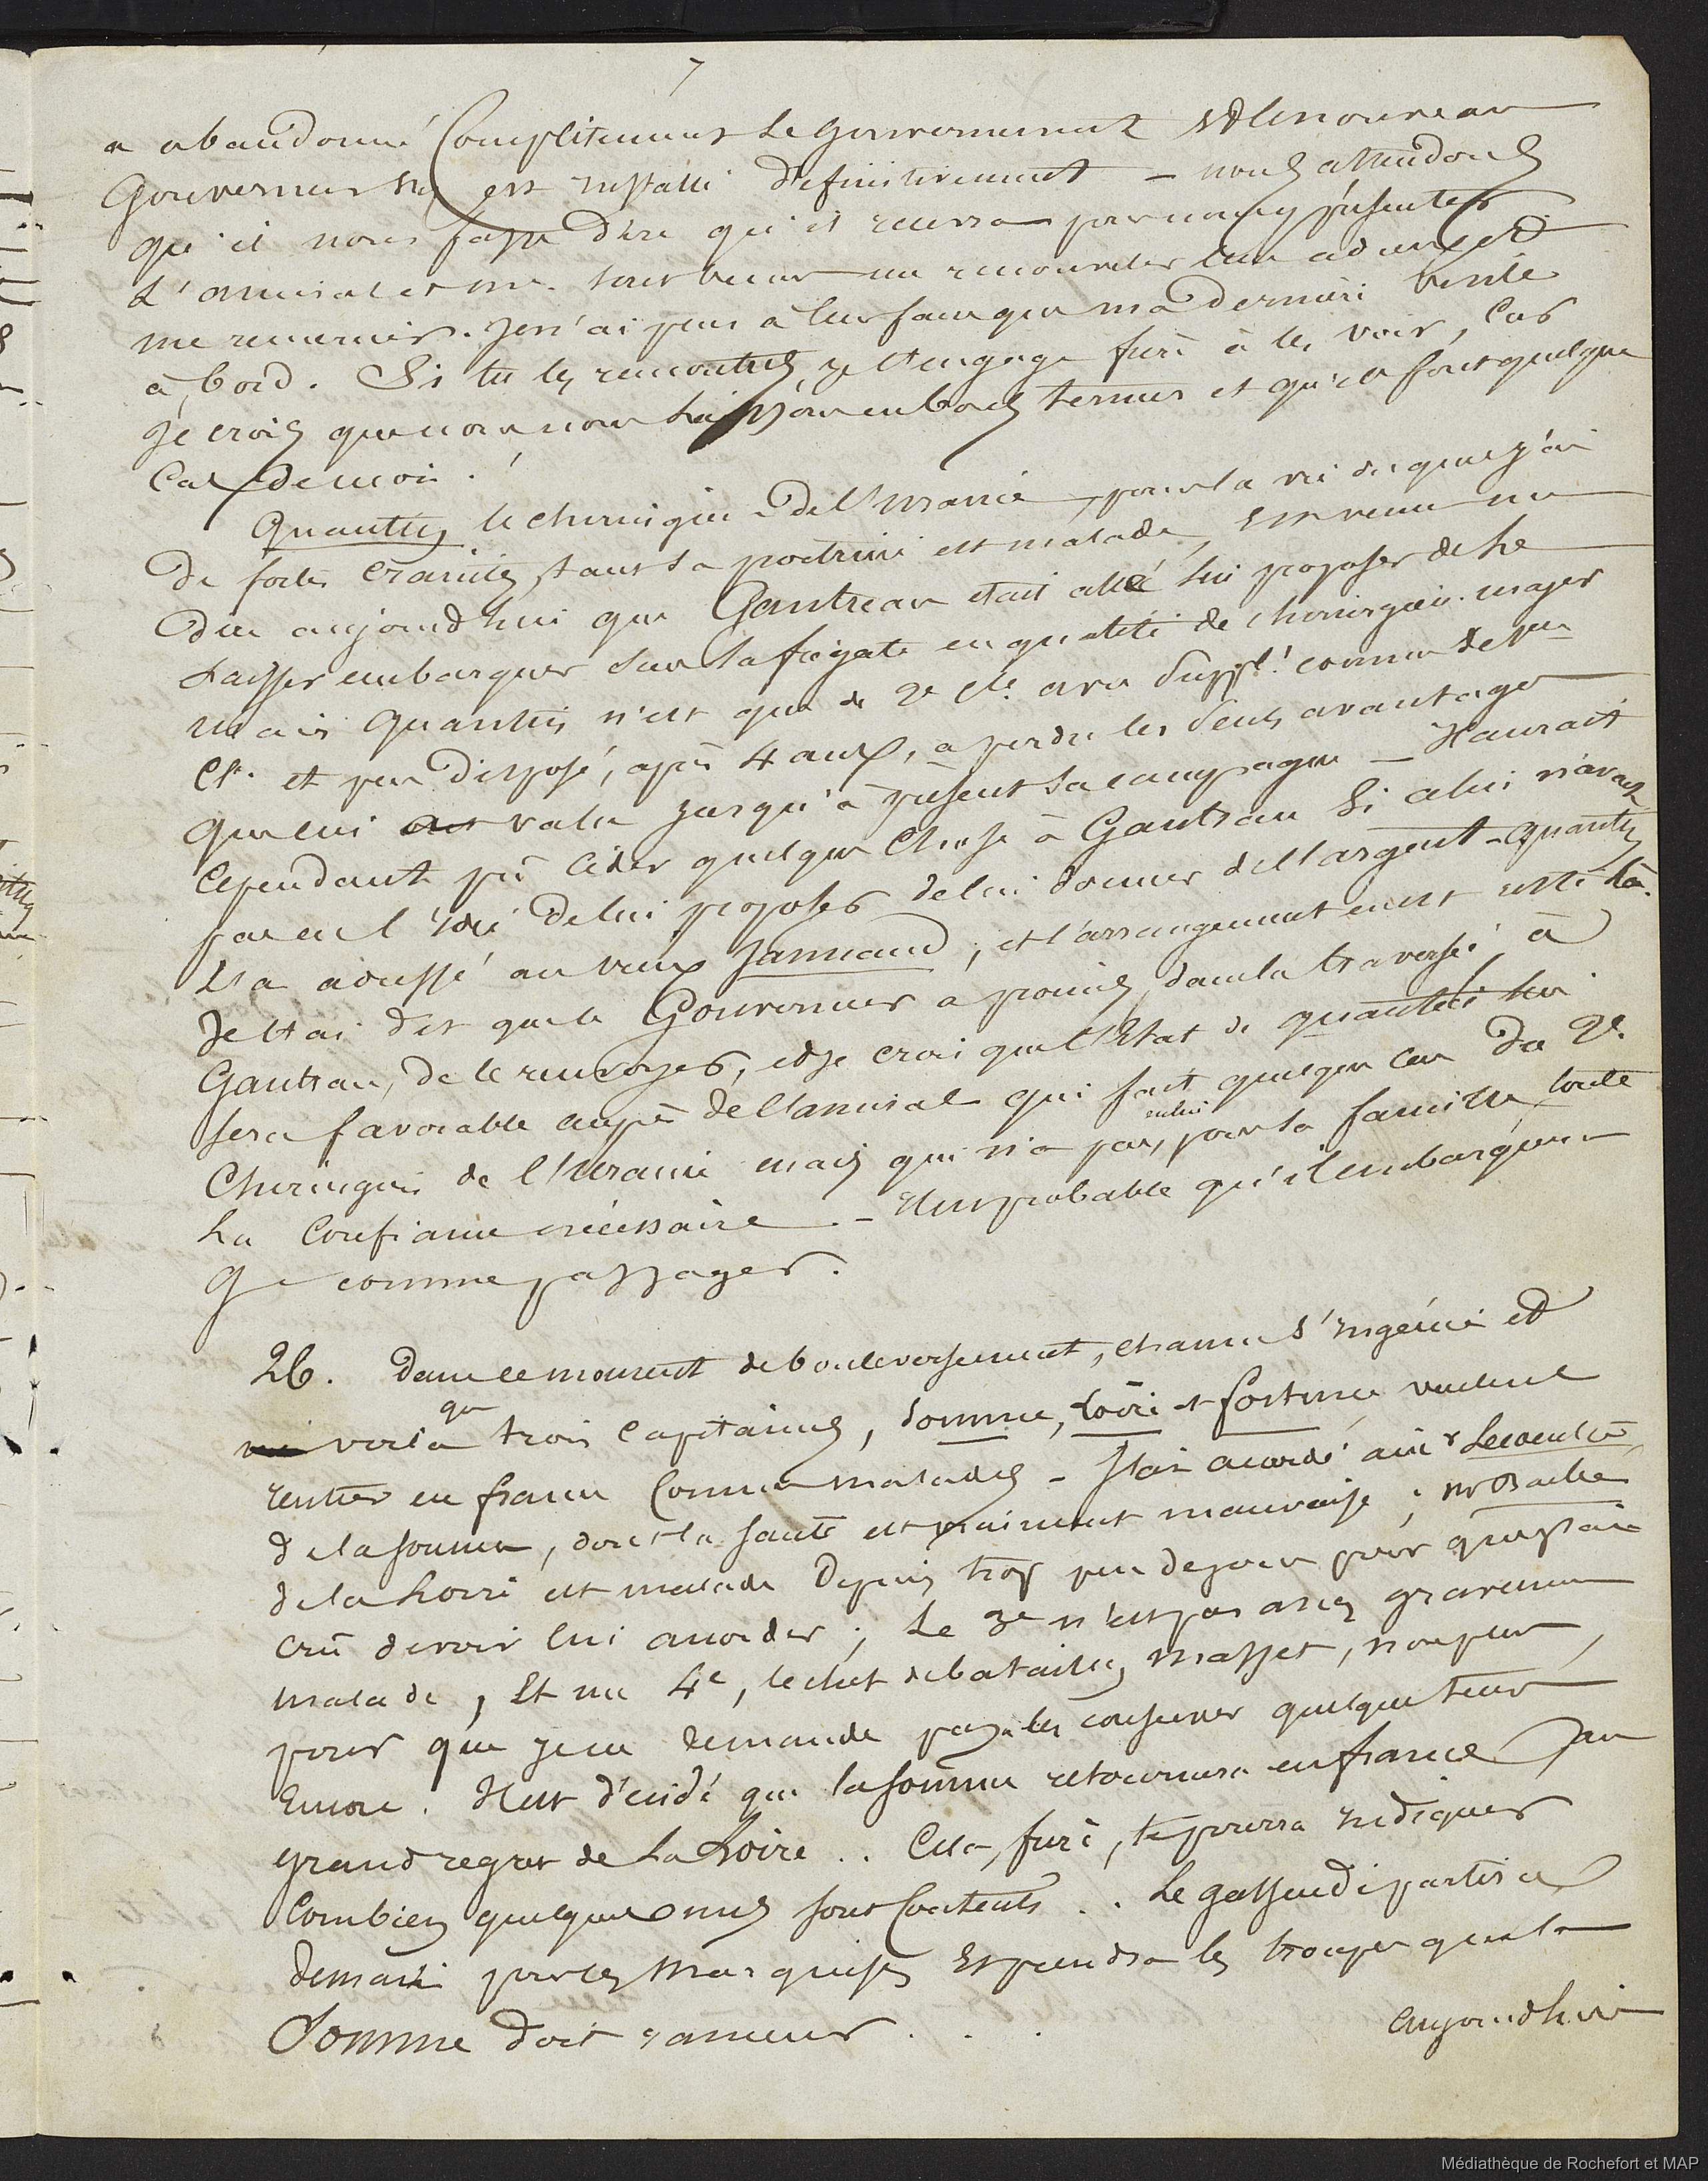 7
a abandonné complitement le gouvernement et le nouveau
Gouverneur s'y est installé définitivement – nous attendons
qu'il nous fasse dire qu'il recevra pour nous y présenter
L'amiral et me. sont venus me renouveler leur adieux et
me remercier. Je n'ai pas à leur faire que ma dernière visite
à bord. Si tu les rencontres, je t'engage furè à les voir, car
Je crois que nous nous laissons en bons termes et qu'ils font quelque
Cas de moi.
Quantin le chirurgien de l'uranie, pour la vie duquel j'ai
de fortes craintes, tant sa poitrine est malade, est venu me
dire aujourd'hui que Gautreau était allé lui proposer de se
laisser embarquer sur la frégate en qualité de chirurgien-major
mais Quantin n'est que de 2e cle. avec suppl! comme de 1ère
Cl. et peu disposé, après 4 ans, a perdre les seuls avantages
que lui ait valu jusqu'à présent sa campagne – Il aurait
cependant pû céder quelque chose à Gautreau si celui n'avait
pas eu l'idée de lui proposer de lui donner de l'argent – Quantin
l'a adressé au vieux Janniaud, et l'arrangement en est resté là.
Je t'ai dit que le Gouverneur a promis, dans la traversée, à
Gautreau, de le renvoyer, et je crois que l'état de Quantin lui
sera favorable auprès de l'amiral qui fait quelque cas du 2e
Chirurgien de l'uranie mais qui n'a pas, en lui pour sa famille, toute
la confiance nécessaire. – Il est probable qu'il n'embarquera
que comme passager.
26. Dans ce moment de bouleversement, chacun s'ingénie et
voila que trois capitaines, Somme, Loire et fortune veulent
rentrer en france comme malades – J'ai accordé au Sr Lecoeulte
de la Somme, dont la santé est vraiment mauvaise; Mr Bache
de la Loire est malade depuis trop peu de jours pour que j'aie
crû devoir lui accorder; Le 3e n'est pas assez gravement
malade, Et un 4e, le chef de bataillon Masset, non plus,
pour que je ne demande pas à les conserver quelque tems
Encore. Il est décidé que la Somme retournera en france au
grand regret de La Loire.. Cela, furè, te pourra indiquer
Combien quelques uns sont contents.. Le gassendi partira
demain pour les Marquises et prendra les troupes que la
Somme doit ramener . . .
aujourd'hui
Médiathèque de Rochefort et MAP